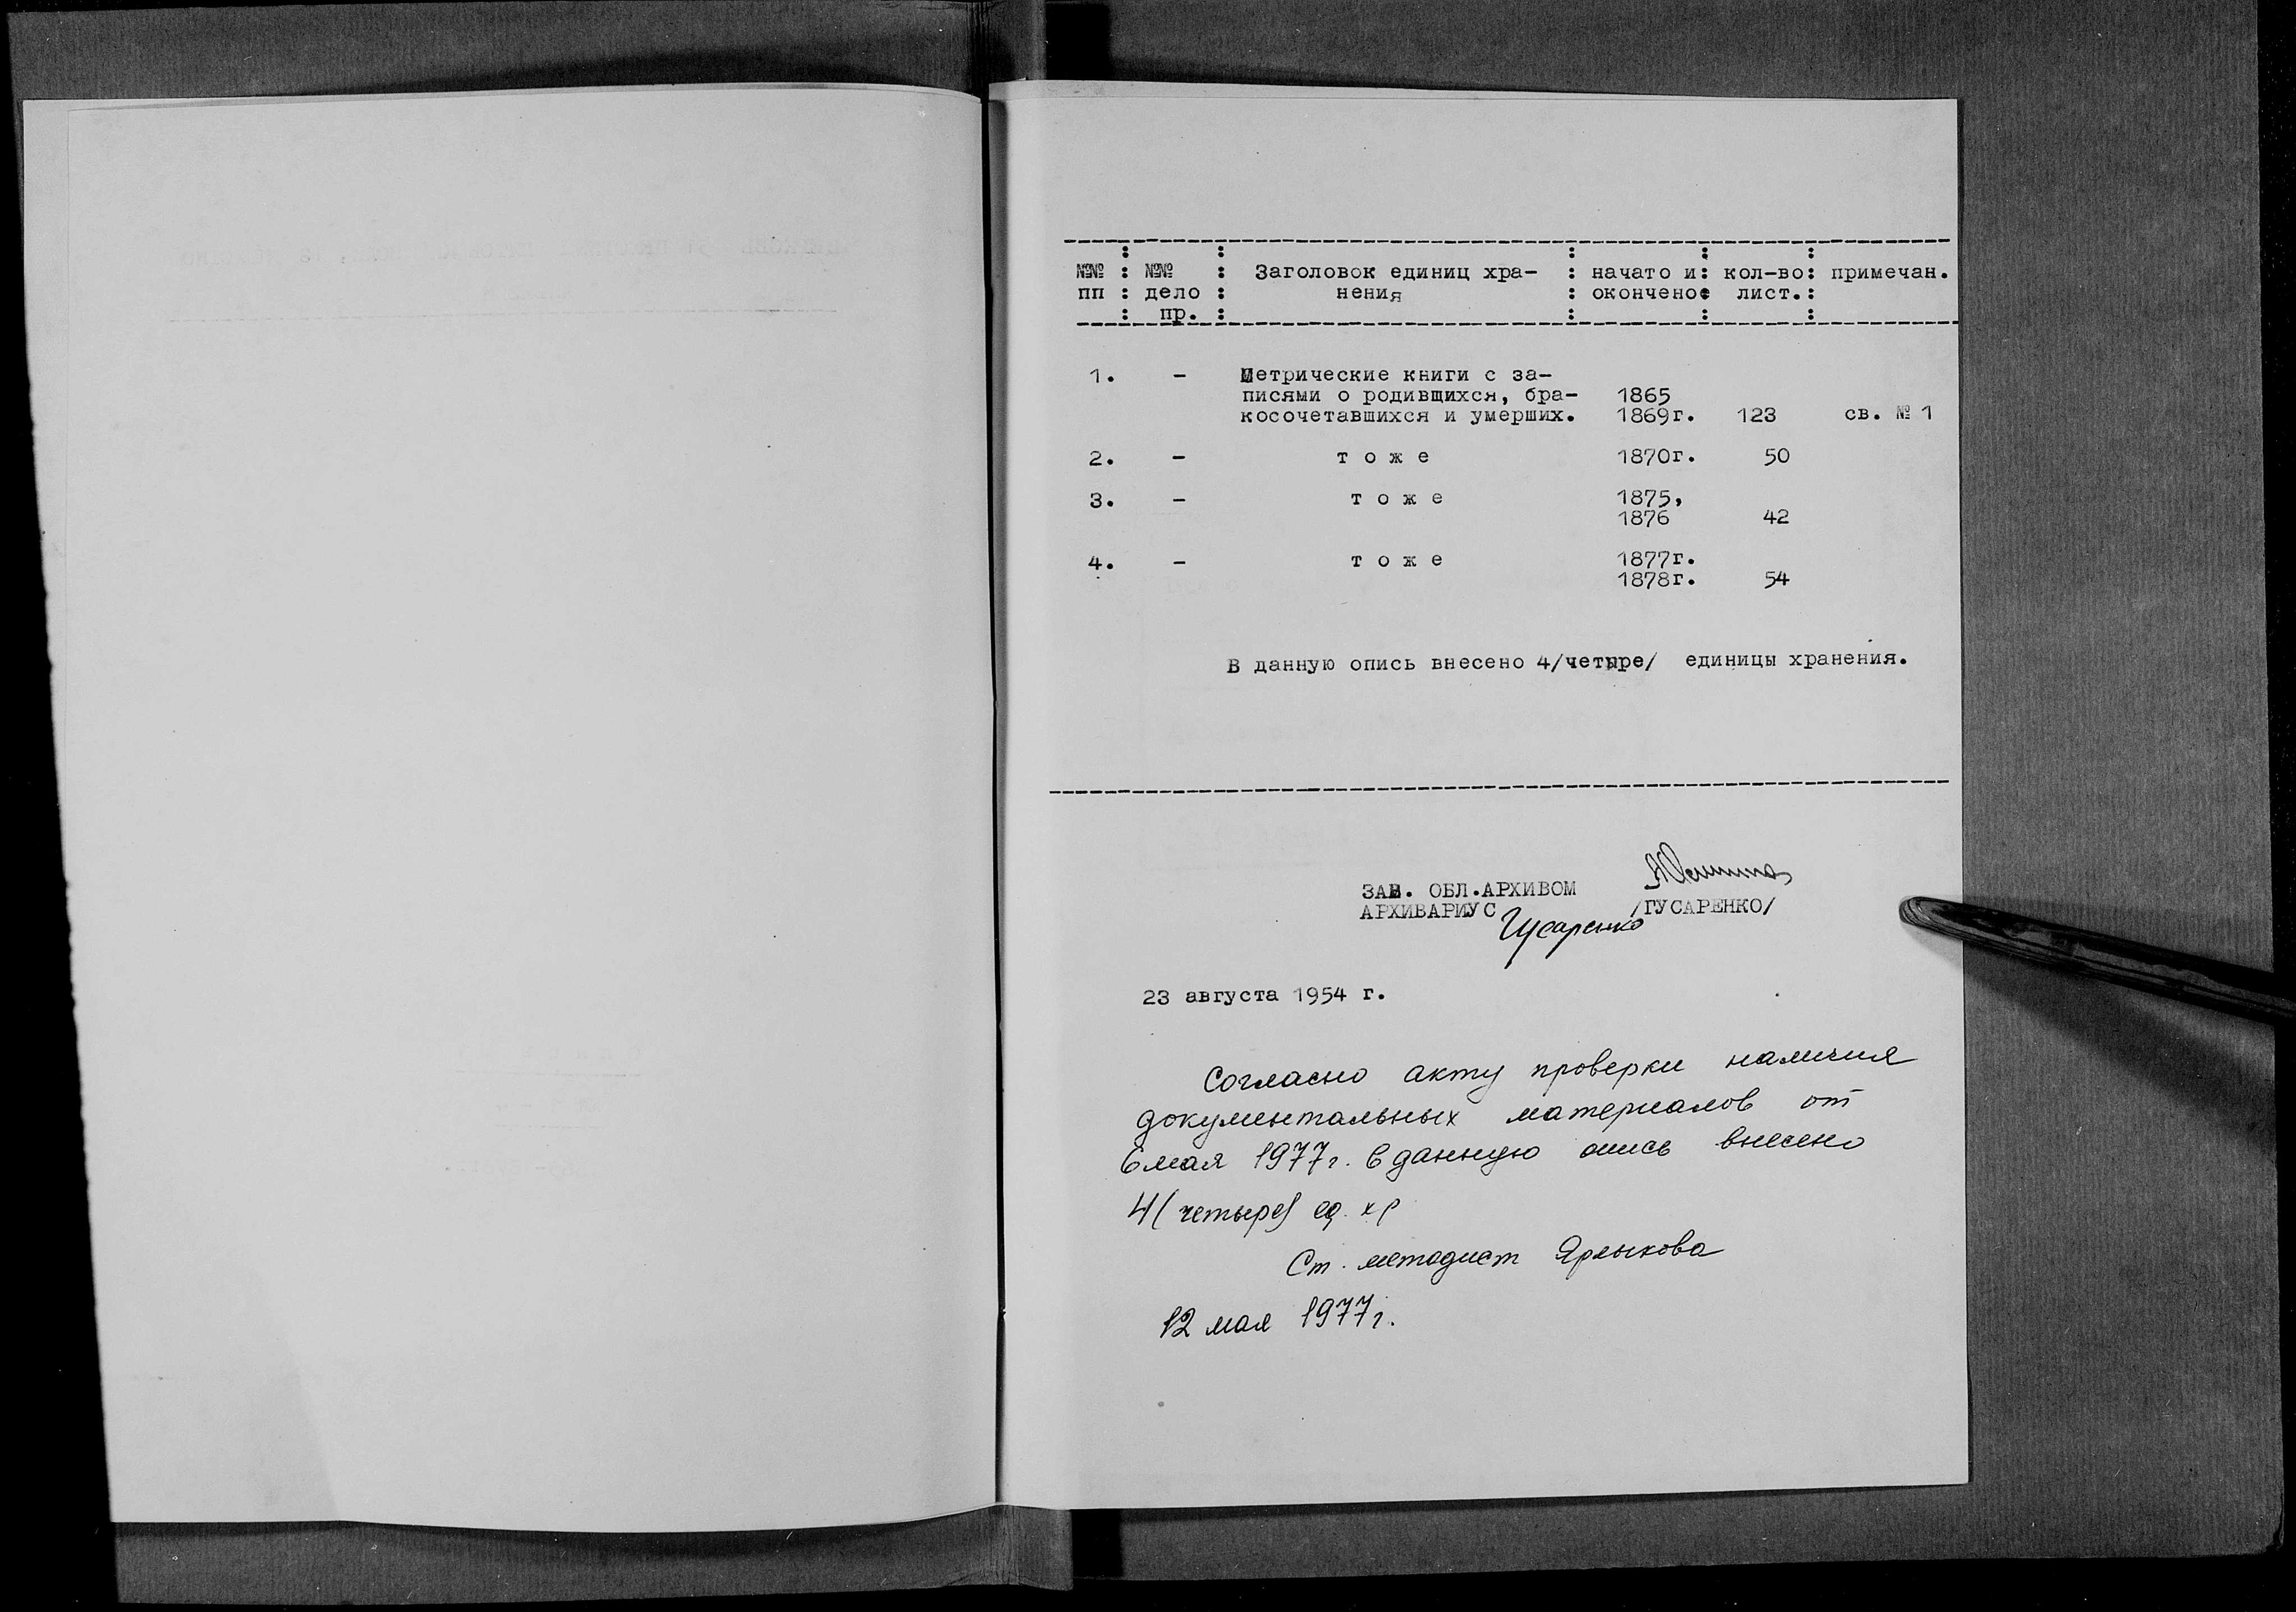 №№ : №№ : Заголовок единиц хра- : начато и: кол-во: примечан.
пп : дело : нения : окончено: лист.:
: пр. : : : :
1. - Метрические книги с за-
писями о родившихся, бра- 1865
косочетавшихся и умерших. 1869г. 123 св. № 1
2. - т о ж е 1870г. 50
3. - т о ж е 1875,
1876 42
4. - т о ж е 1877г.
1878г. 54
В данную опись внесено 4/четыре/ единицы хранения.
ЗАВ. ОБЛ.АРХИВОМ
АРХИВАРИУС /ГУСАРЕНКО/
Гусаренко
23 августа 1954 г.
Согласно акту проверки наличия
документальных материалов от
6 мая 1977г. в данную опись внесено
4 (четыре) ед. хр
Ст. методист Ярлыкова
12 мая 1977г.